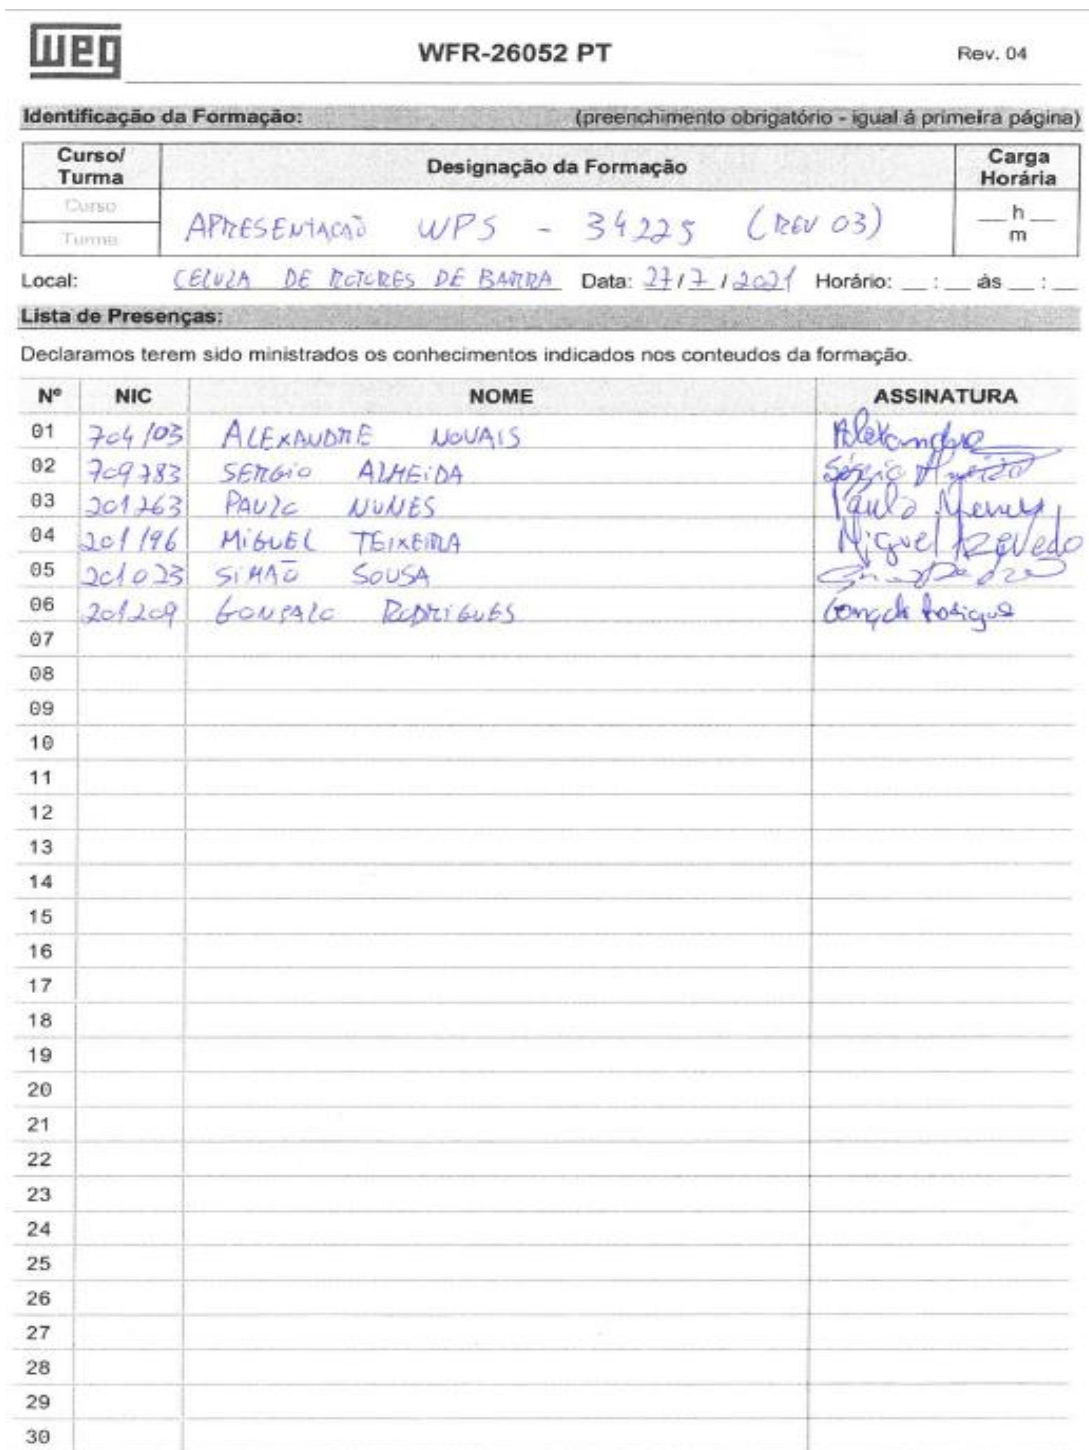 weg WFR-26052 PT Rev. 04
Identificação da Formação: (preenchimento obrigatório - igual á primeira página)
Curso/ Turma Designação da Formação Carga Horária
Curso
Turma
APRESENTAÇÃO WPS - 34225 (REV 03) __ h __ m
Local: CELULA DE ROTORES DE BARRA Data: 27/7/2021 Horário: __ : __ ás __ : __
Lista de Presenças:
Declaramos terem sido ministrados os conhecimentos indicados nos conteudos da formação.
Nº NIC NOME ASSINATURA
01 704103 ALEXANDRE NOVAIS Alexandre
02 709783 SERGIO ALMEIDA Sérgio Almeida
03 201263 PAULO NUNES Paulo
04 201196 MIGUEL TEIXEIRA Miguel Azevedo
05 201023 SIMÃO SOUSA
06 201209 GONÇALO RODRIGUES
07
08
09
10
11
12
13
14
15
16
17
18
19
20
21
22
23
24
25
26
27
28
29
30